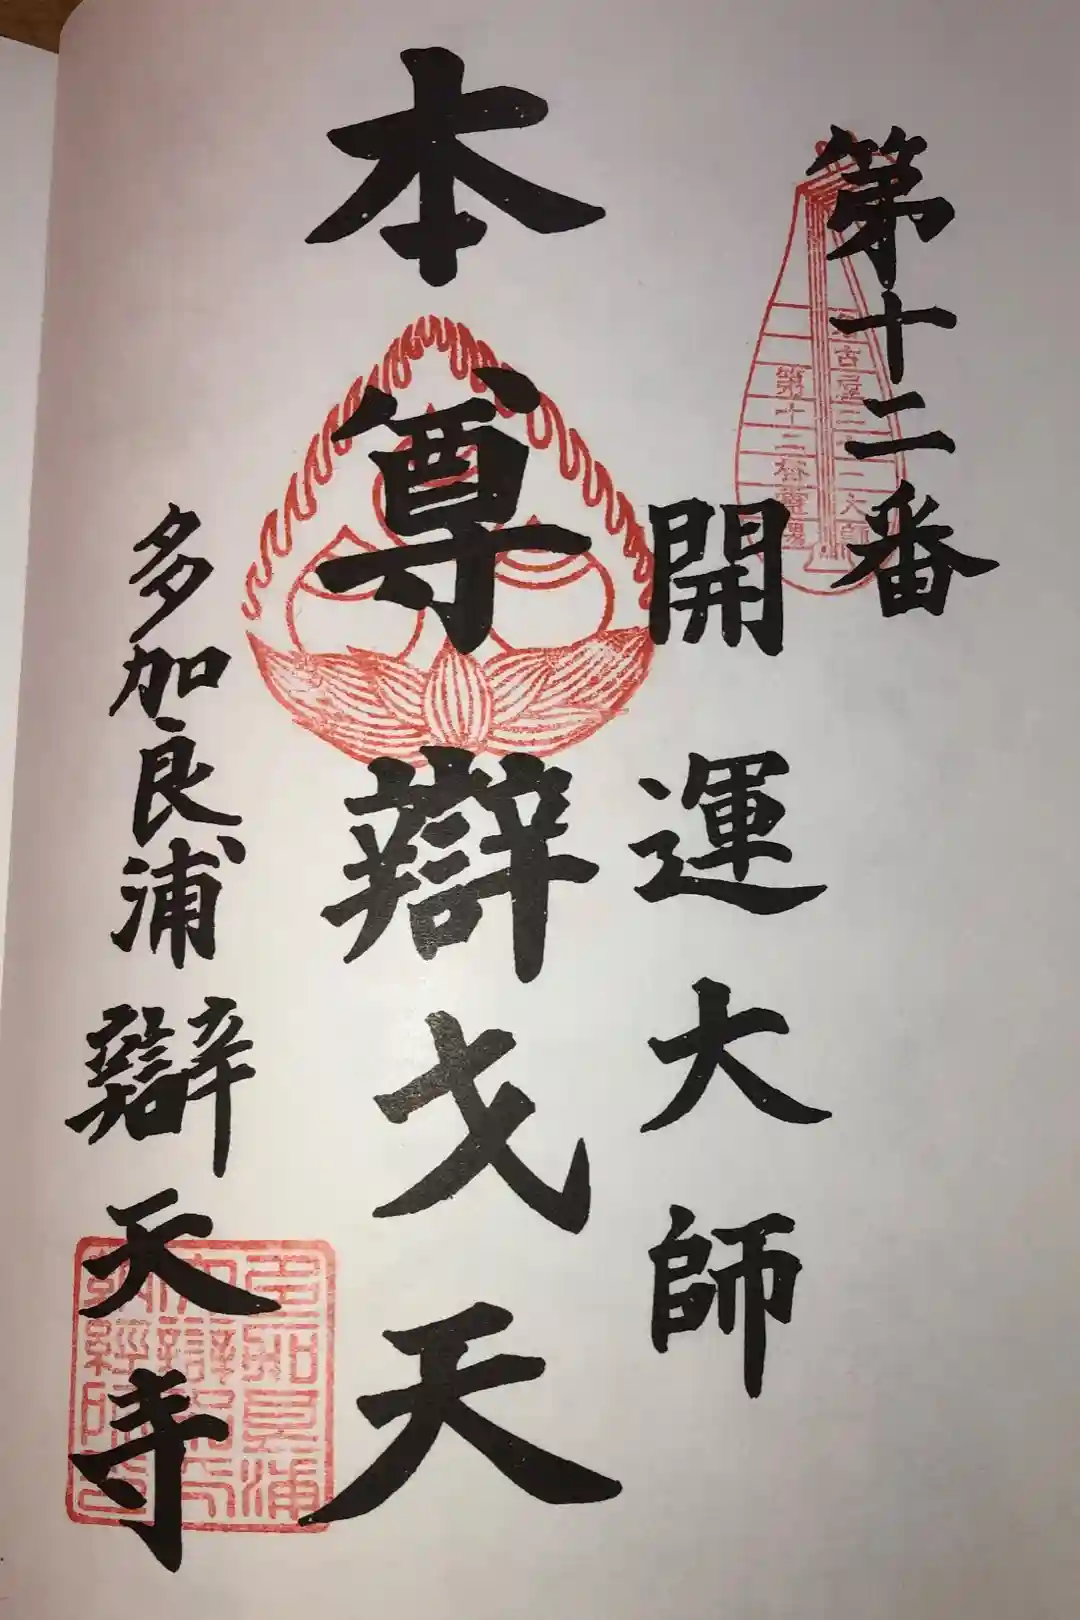 第十二番
開運大師
本尊辯戈天
多加良浦辯天寺
名古屋二十一大師
第十二番霊場